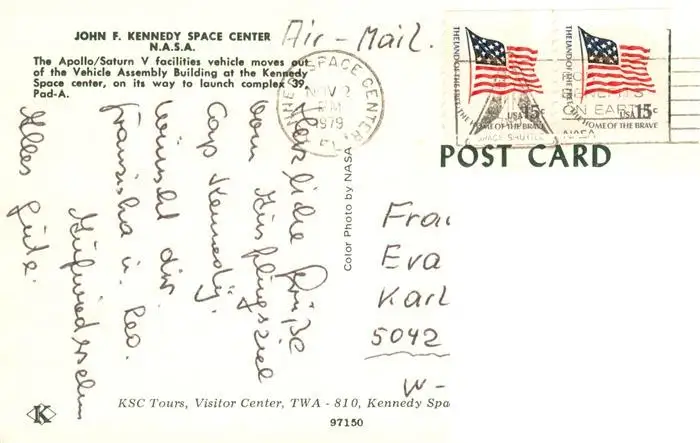 JOHN F. KENNEDY SPACE CENTER
N.A.S.A.
The Apollo/Saturn V facilities vehicle moves out
of the Vehicle Assembly Building at the Kennedy
Space center, on its way to launch complex 39,
Pad-A.
Air-Mail.
SPACE CENTER
NOV 2
PM
1979
FL
THE LAND OF THE FREE THE HOME OF THE BRAVE
USA 15c
THE LAND OF THE FREE THE HOME OF THE BRAVE
USA 15c
ON EARTH
NASA
SPACE SHUTTLE
POST CARD
Herzliche Grüße
vom
Cap Kennedy.
wünscht dir
Franziska u. Leo.
Aufwiedersehn
Alles Gute.
Color Photo by NASA
Frau
Eva
Karl
5042
W-
K
KSC Tours, Visitor Center, TWA - 810, Kennedy Spa
97150